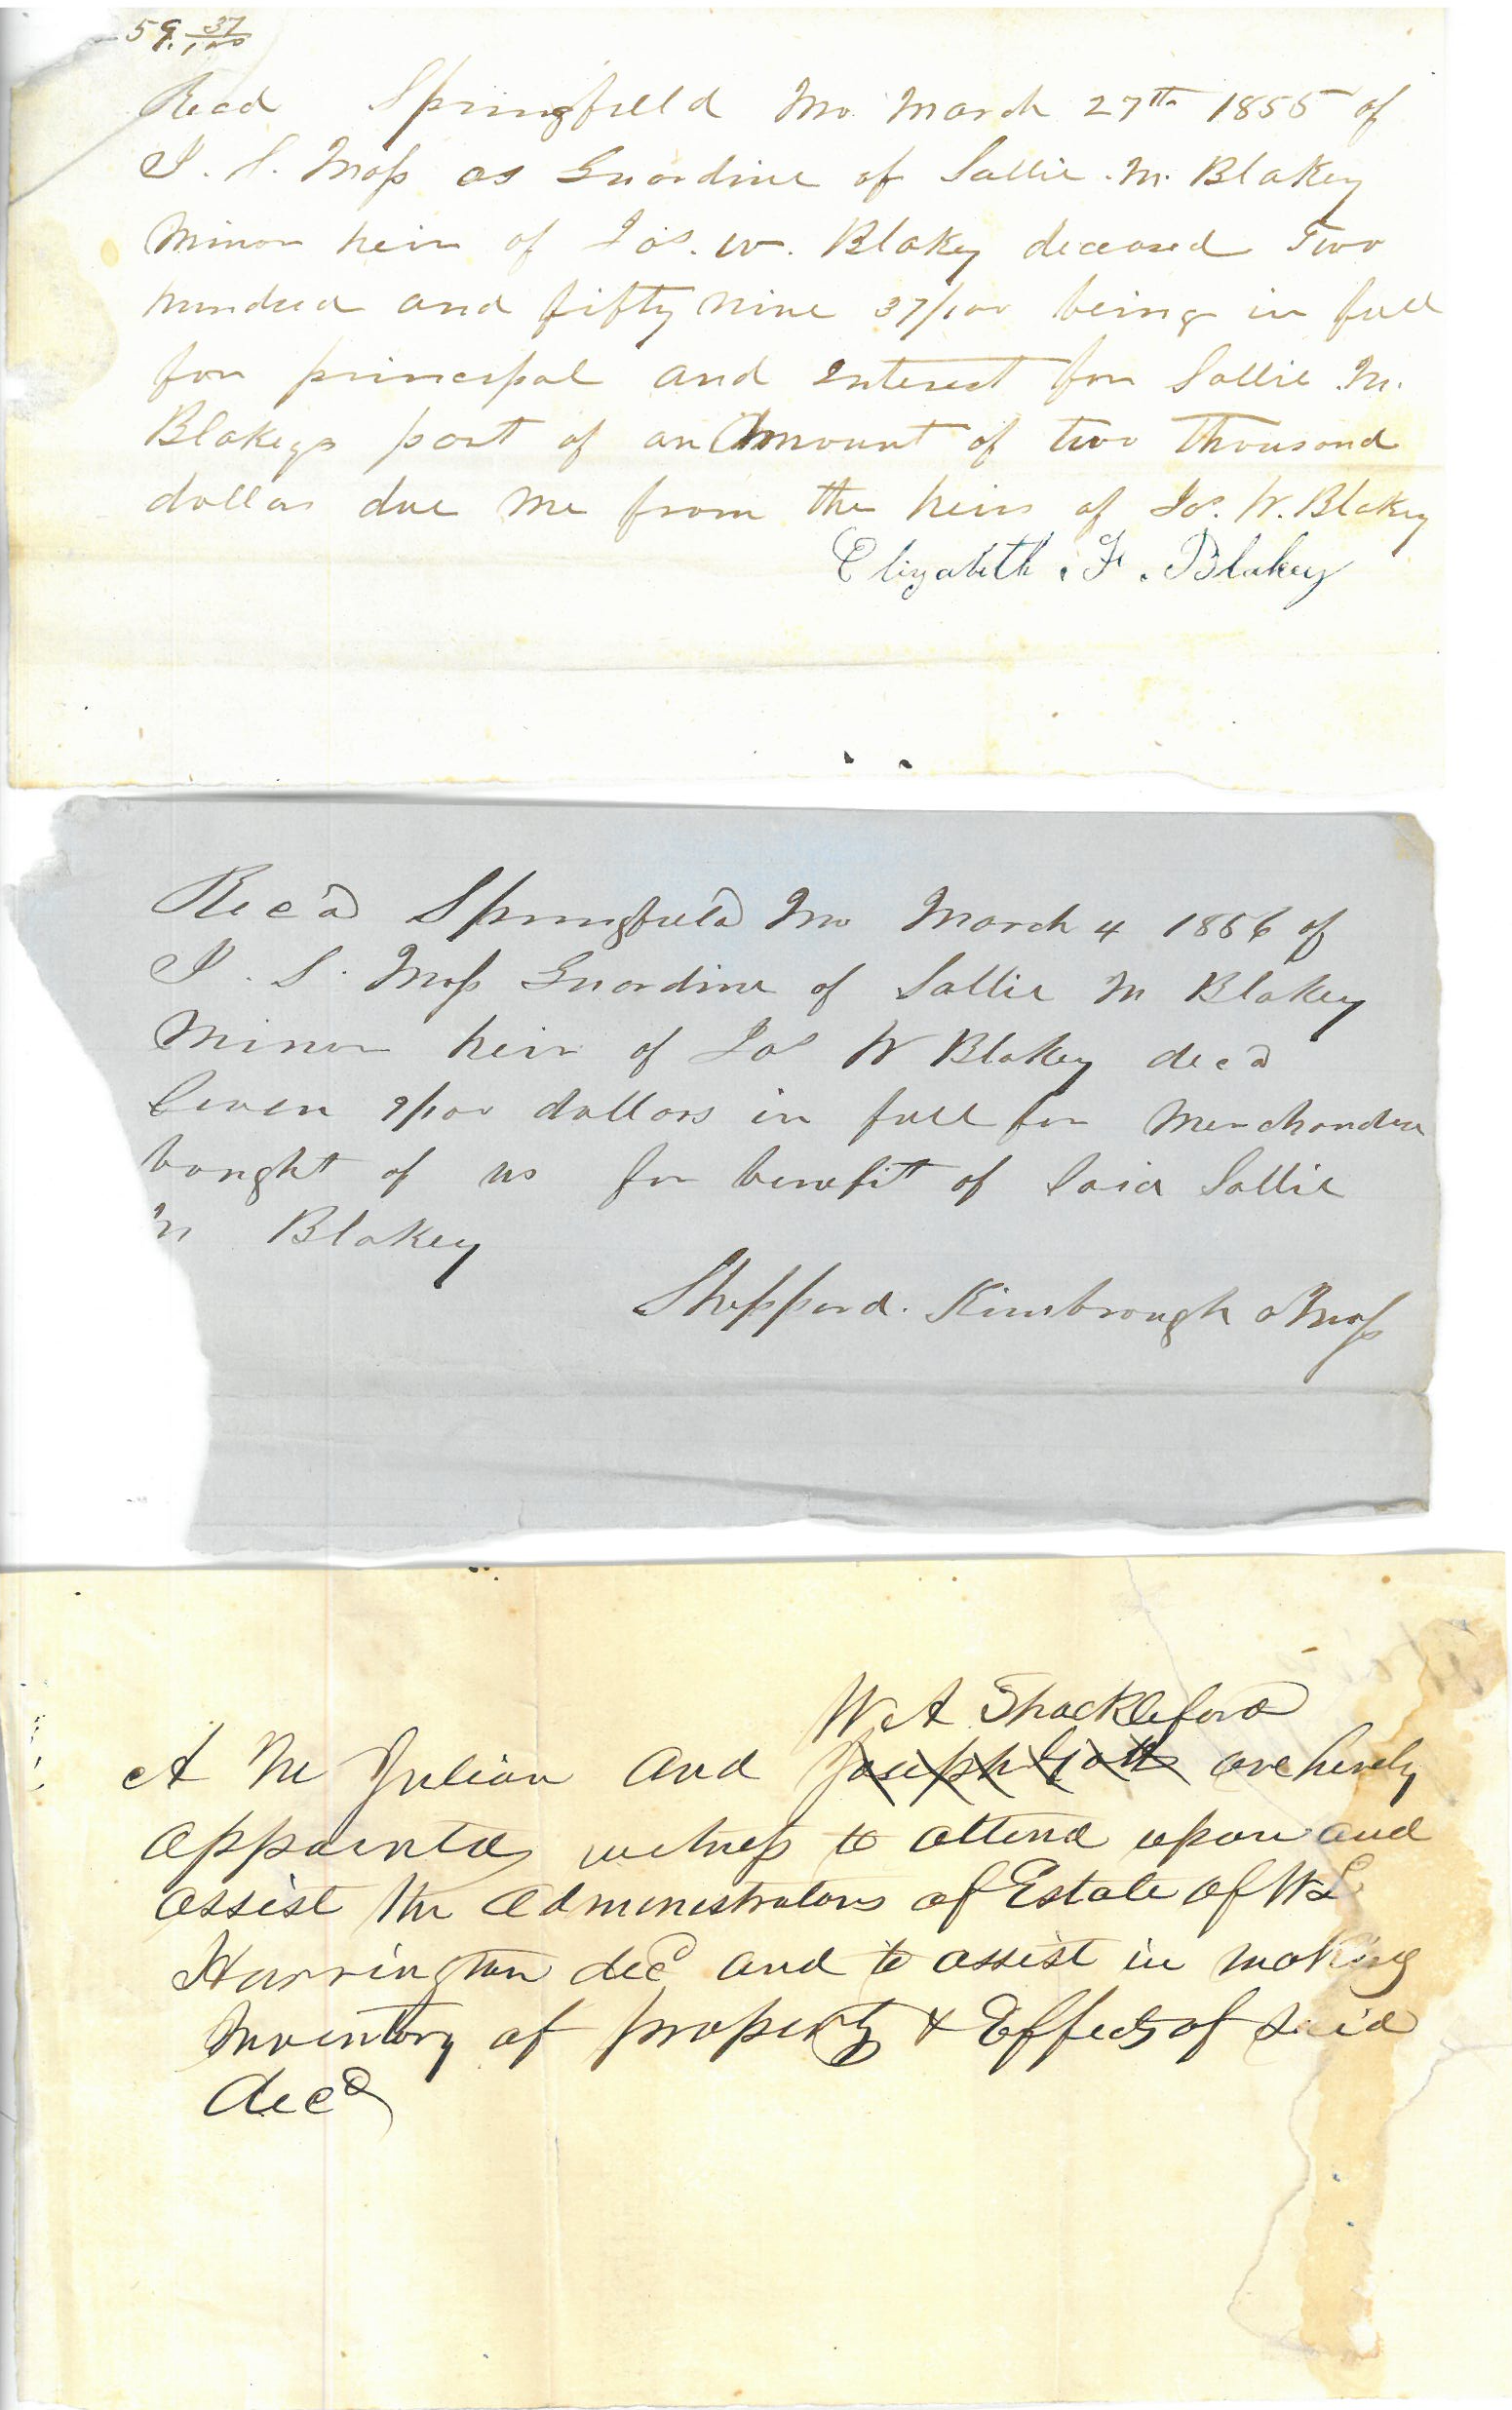 59. 37/100
Recd Springfield Mo March 27th 1855 of
J. S. Moss as Guardine of Sallie M. Blakey
Minor heir of Jos. W. Blakey deceased Two
hundred and fifty nine 37/100 being in full
for principal and Interest for Sallie M.
Blakeys part of an Amount of two thousand
dollars due me from the heirs of Jos. W. Blakey
Elizabeth. F. Blakey
Rec'd Springfield Mo March 4 1856 of
J. S. Moss Guardine of Sallie M Blakey
Minor heir of Jos W Blakey dec'd
Seven 9/100 dollars in full for Merchandise
bought of us for benefit of said Sallie
M Blakey
Sheppard. Kimbrough & Moss
W A Shackleford
A M Julian and Joseph Gott are hereby
appointed witness to attend upon and
assist the administrators of Estate of W L
Harrington decd and to assist in making
Inventory of property & Effects of said
decd